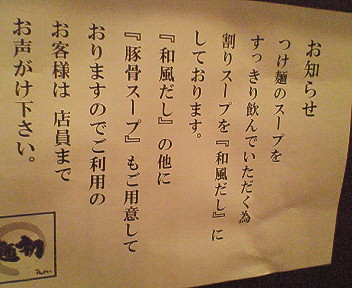 お知らせ
つけ麺のスープを
すっきり飲んでいただく為
割りスープを『和風だし』に
しております。
『和風だし』の他に
『豚骨スープ』もご用意して
おりますのでご利用の
お客様は 店員まで
お声がけ下さい。